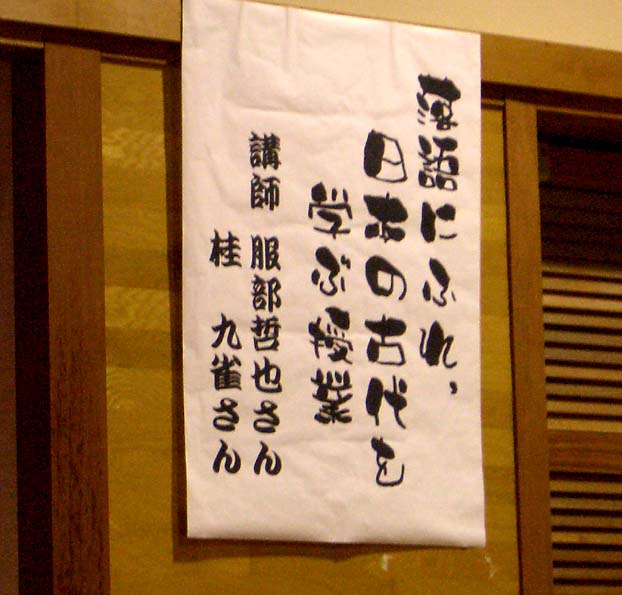 落語にふれ、
日本の古代を
学ぶ授業
講師 服部哲也さん
桂 九雀さん